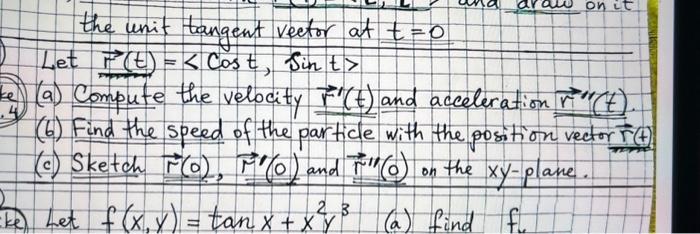 and draw on it
the unit tangent vector at t=0
Let r⃗(t) = < Cos t, Sin t>
ke) (a) Compute the velocity r⃗'(t) and acceleration r⃗''(t).
.4 (b) Find the speed of the particle with the position vector r⃗(t)
(c) Sketch r⃗(0), r⃗'(0) and r⃗''(0) on the xy-plane.
ke) Let f(x,y) = tan x + x²y³ (a) find f